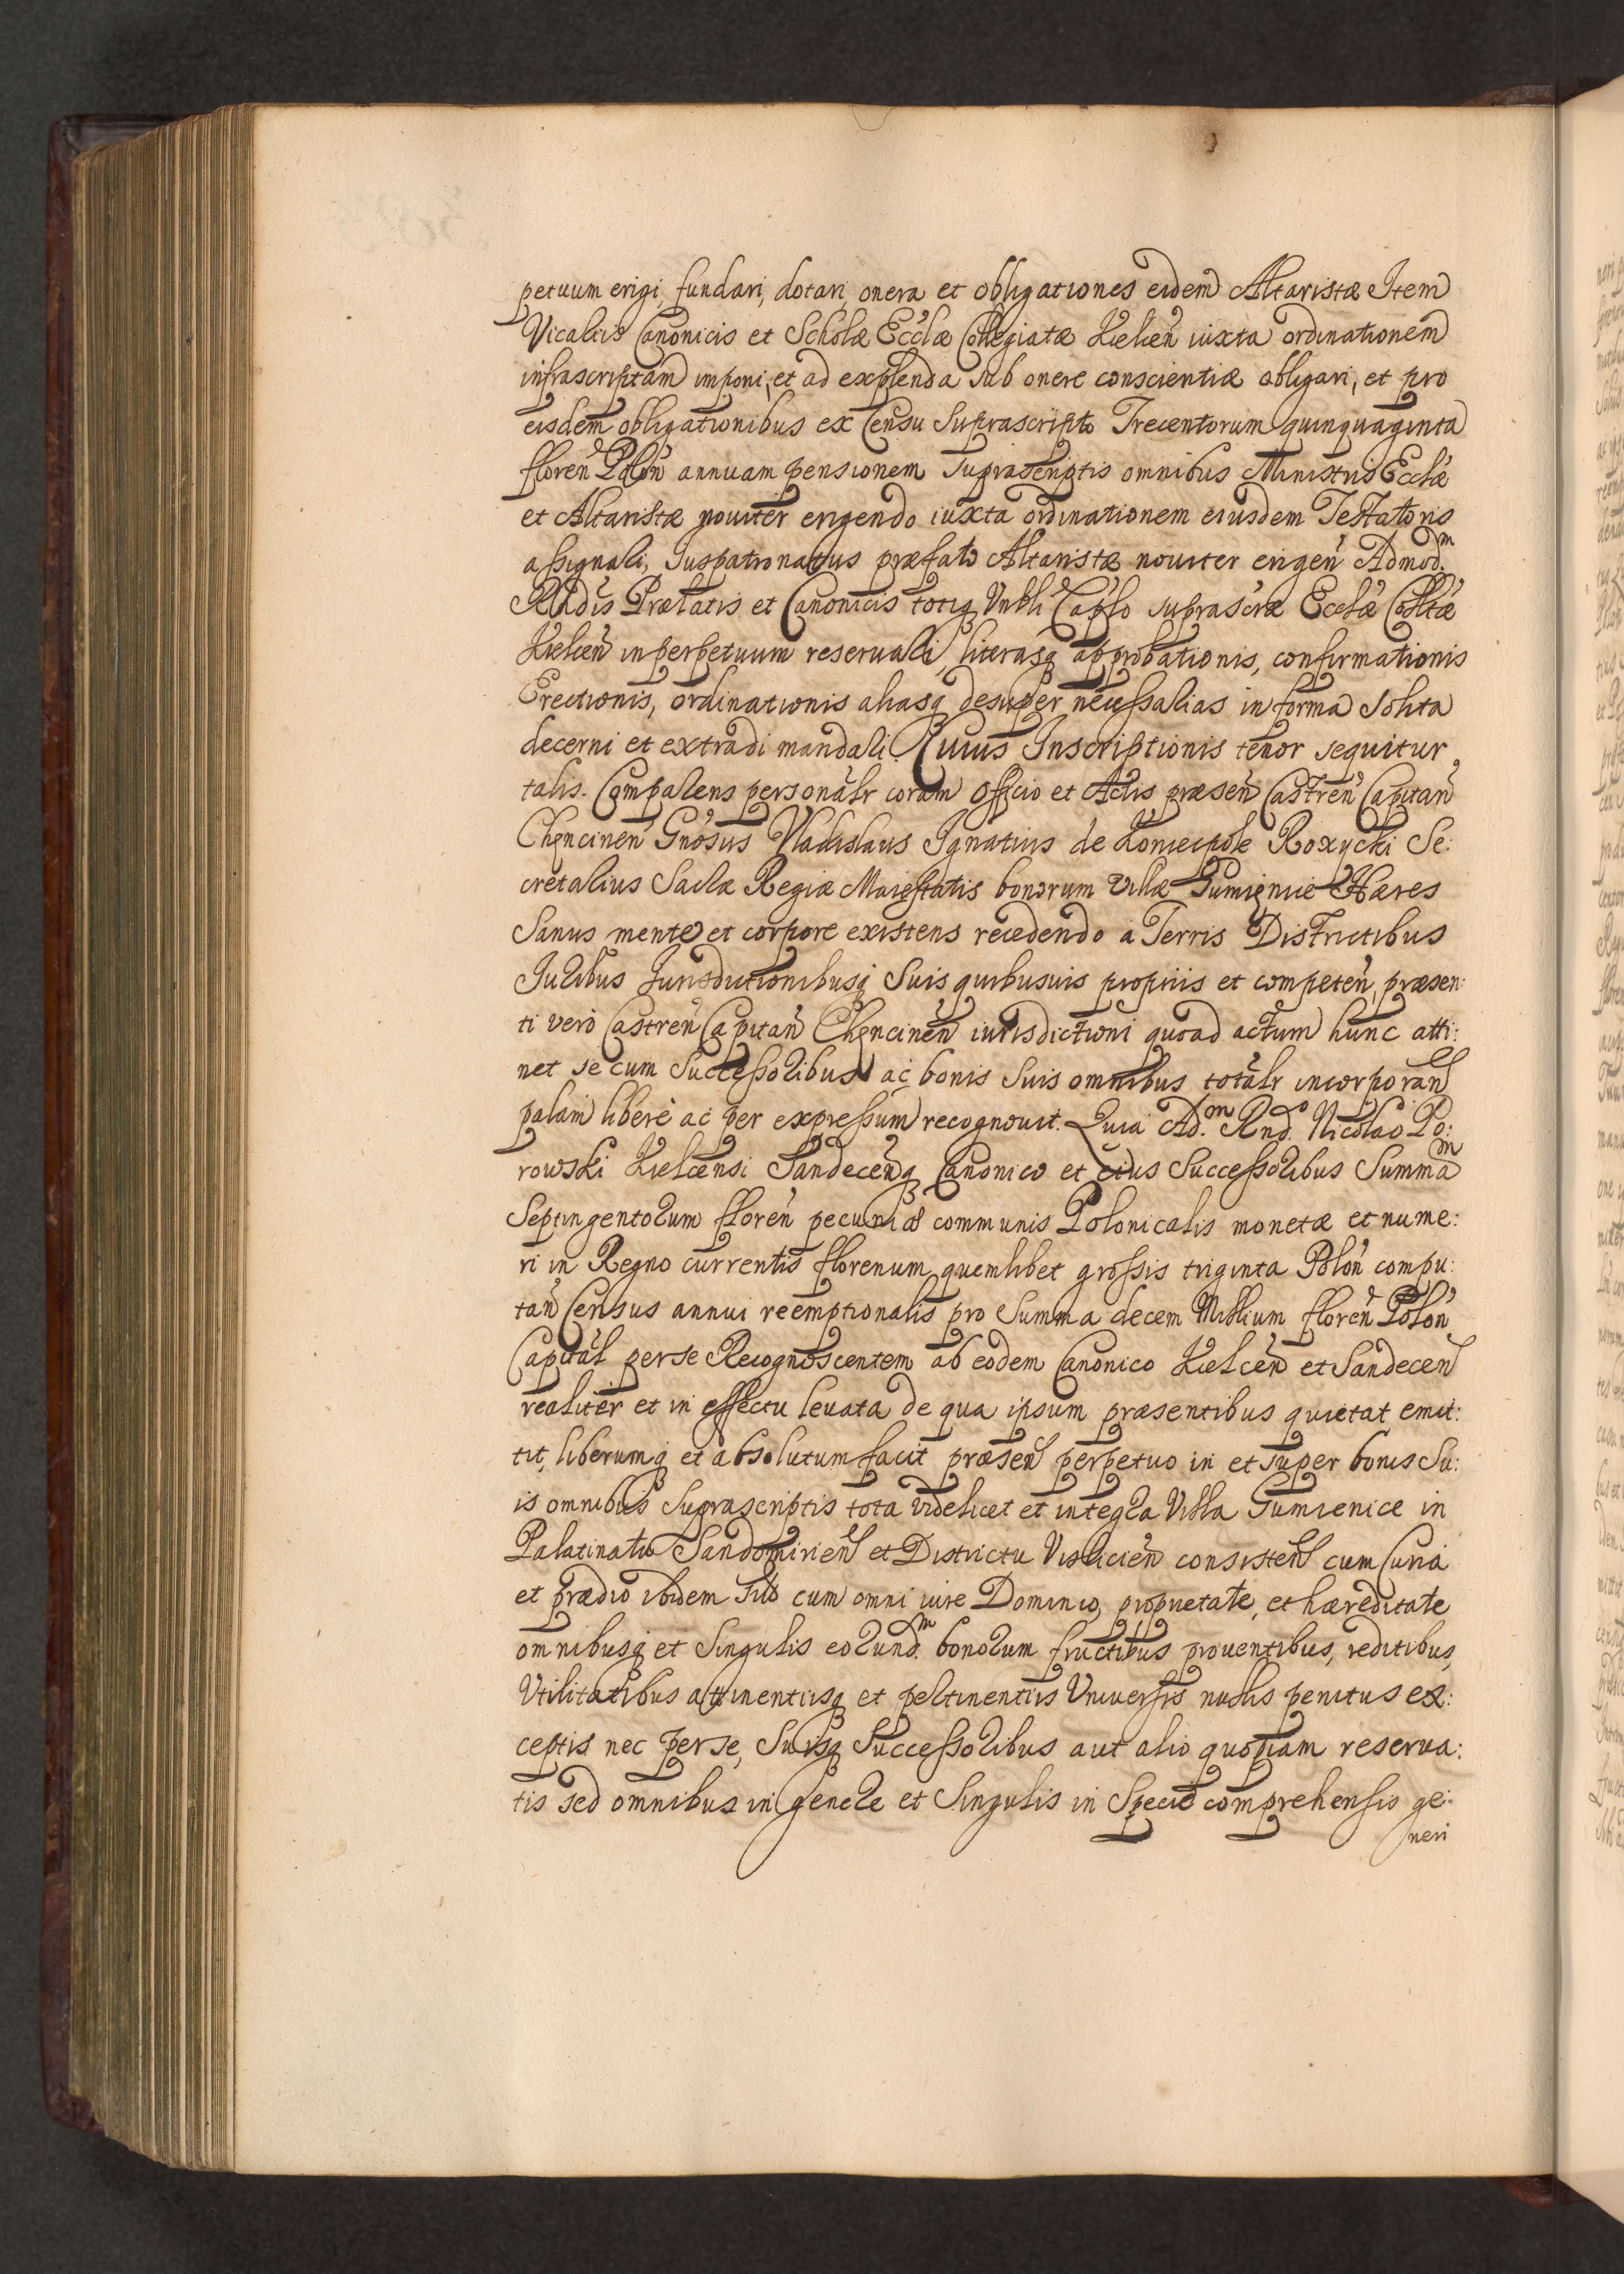 petuum erigi, fundari, dotari, onera et obligationes eidem Altaristæ Item
Vicariis Canonicis et Scholæ Eccłæ Collegiatæ Kielceń iuxta ordinationem
infrascriptam imponi, et ad explenda sub onere conscientiæ obligari, et pro
eisdem obligationibus ex Censu suprascripto Trecentorum quinquaginta
floreń Poloń annuam pensionem suprascriptis omnibus Ministris Eccłæ
et Altaristæ nouiter erigendo iuxta ordinationem eiusdem Testatoris
assignari, Juspatronatus præfato Altaristæ nouiter erigeń Admod.m
Rńdis Prælatis et Canonicis totiq Vnłi Capło suprascræ Eccłæ Colltæ
Kielceń in perpetuum reseruari, literasq approbationis, confirmationis
Erectionis, ordinationis aliasq desuper necessarias in forma solita
decerni et extradi mandari. Cuius Inscriptionis tenor sequitur
talis. Comparens personalr coram Officio et Actis præseń Castreń Capitań
Chęncineń Gnosus Vladislaus Ignatius de Koniecpole Roxycki Se:
cretarius Sacræ Regiæ Maiestatis bonorum Villæ Gumięnice Hæres
Sanus mente et corpore existens recedendo a Terris Districtibus
Juribus Jurisdictionibusq Suis quibusuis propriis et competeń, præsen:
ti vero Castreń Capitań Chęncineń iurisdictioni quoad actum hunc atti:
net se cum Successoribus ac bonis Suis omnibus totalr incorporań
palam libere ac per expressum recognouit. Quia Ad.m Rnd.o Nicolao Po:
rowski Kielcensi Sandeceńq Canonico et eius Successoribus Summam
Septingentorum floreń pecuniæ communis Polonicalis monetæ et nume:
ri in Regno currentis florenum quemlibet grossis triginta Poloń compu:
tań Census annui reemptionalis pro Summa decem Millium floreń Poloń
Capitał per se Recognoscentem ab eodem Canonico Kielceń et Sandeceń
realiter et in effectu leuata de qua ipsum præsentibus quietat emit:
tit, liberumq et absolutum facit præseń perpetuo in et super bonis Su:
is omnibus Suprascriptis tota videlicet et integra Villa Gumienice in
Palatinatu Sandomirień et Districtu Vislicień consisteń cum Curia
et prædio ibidem sito cum omni iure Dominio, proprietate, et hæreditate
omnibusq et Singulis eorund.m bonorum fructibus prouentibus, reditibus,
Vtilitatibus attinentiisq et pertinentiis Vniuersis nullis penitus ex:
ceptis nec per se, Suisq Successoribus aut alio quopiam reserua:
tis sed omnibus in genere et Singulis in Specie comprehensis ge:
neri